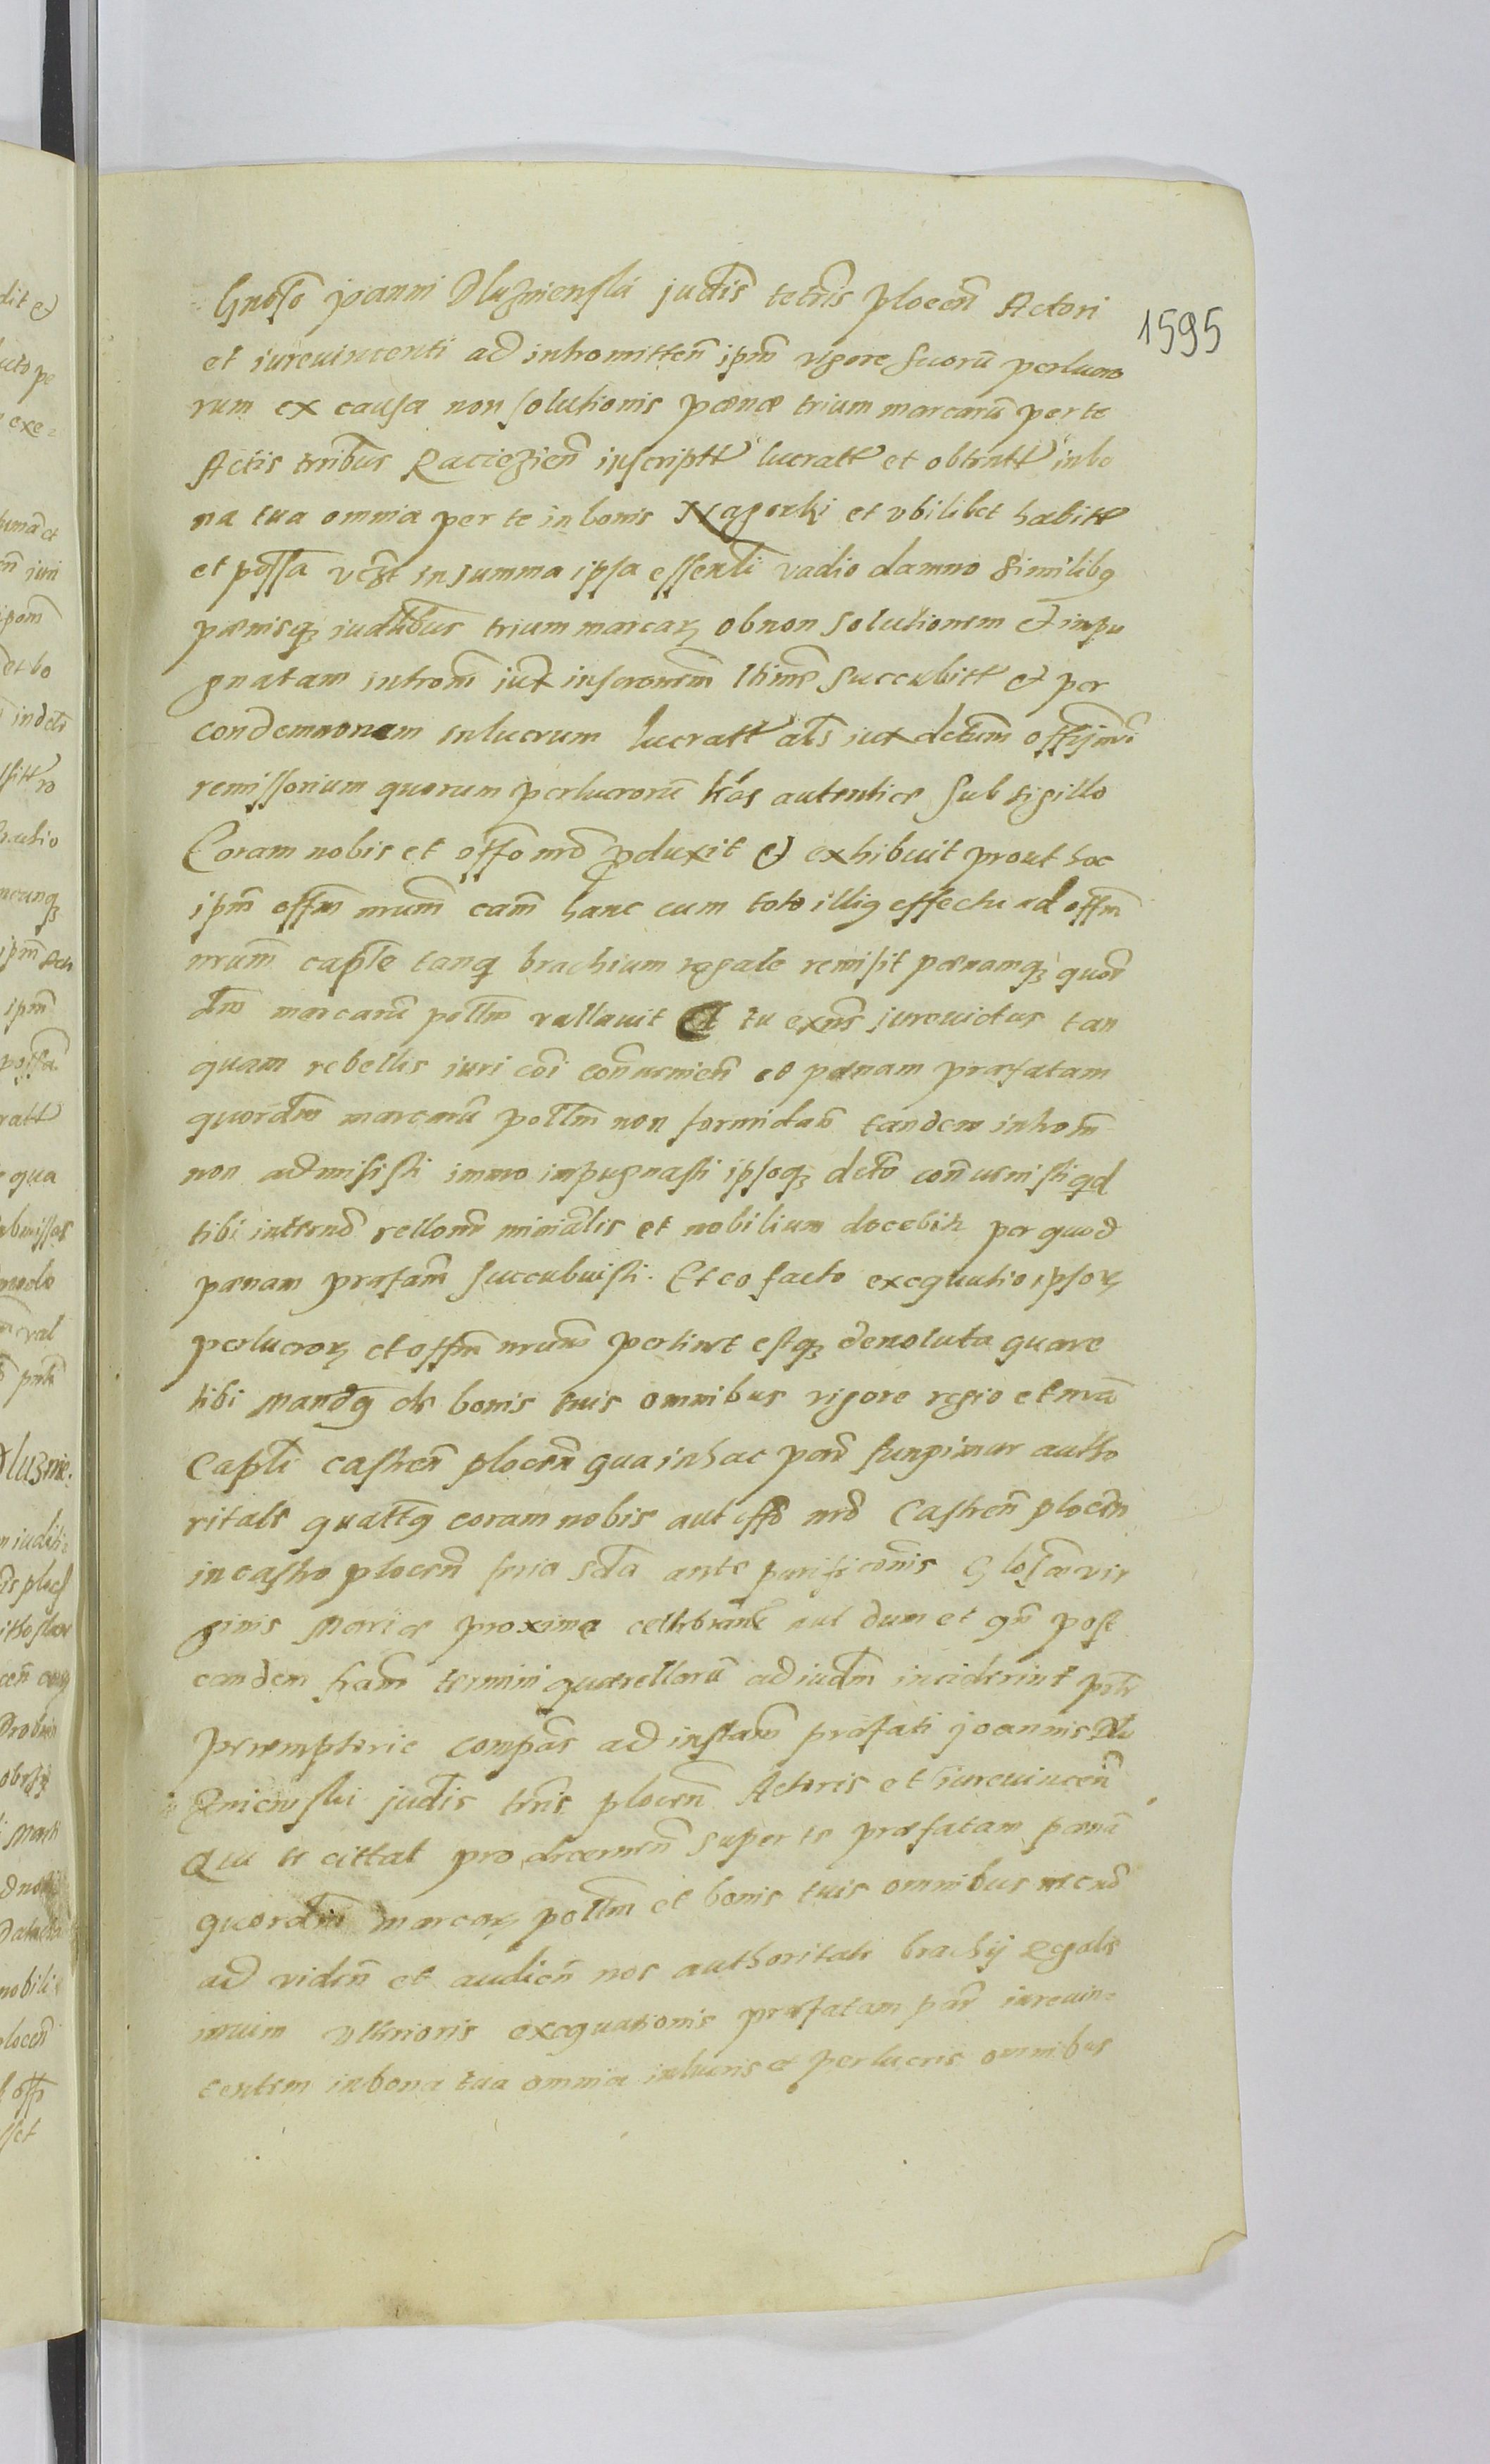 Gnoso Joanni Dluzniewski Judicis tertris plocen Actori
1595
et iurevincenti ad intromitten ipm vigore suoru perlucro
rum ex causa non solutionis pœnæ trium marcaru per te
Actis trribus Raciezien inscriptt lucratt et obtntt in bo
na tua omnia per te in bonis Nagorki et vbilibet habitt
et possa vczt in summa ipsa essentli vadio damno similibq
pœnisq iudlibus trium marcaru ob non solutionem et inpu
gnatam introm iuxt inscronem ltimè succubitt et per
condemnonem in lucrum lucratt als iuxt dctum offij
remissorium quorum perlucroru lras autentice sub sigillo
Coram nobis et offo nro pduxit et exhibuit prout hoc
ipm offm nrum cam hanc cum toto illiq effectu ad offm
nrum caple tanq brachium regale remisit pœnamq quor
dm marcaru pollm vallavit Et tu exns jurevictus tan
quam rebellis iuri coi convenien et pœnam præfatam
quordm marcaru pollm non formidan tandem introm
non admisisti immo inpugnasti ipsoq dcto conuenisti qd
tibi intrnd rellone minialis et nobilium docebitr per quod
pœnam præfam succubuisti. Et eo facto exequutio ipsoru
perlucroru et offm nrum pertinet estq devoluta quare
tibi mandq de bonis tuis omnibus vigore regio et nra
Capli castren plocen qua in hac par fungimur autho
ritate quattq coram nobis aut offo nro Castren plocen
in castro plocen feria scda ante purificonis Glosæ vir
ginis Mariæ proxima celebran aut dum et qn post
eandem fiam termini quærellaru ad iudm inciderint
peremptorie compas ad instam præfati Joannis Dlu
zniewski judicis trris plocen Actoris et iurevincen
Qui te cittat pro decernen super te præfatam pœna
quordm marcaru pollm et bonis tuis omnibus
ad viden et audien nos authoritate brachij regalis
vltrioris exequutionis præfatam par iurevin
centem in bona tua omnia in lucris et perlucris omnibus